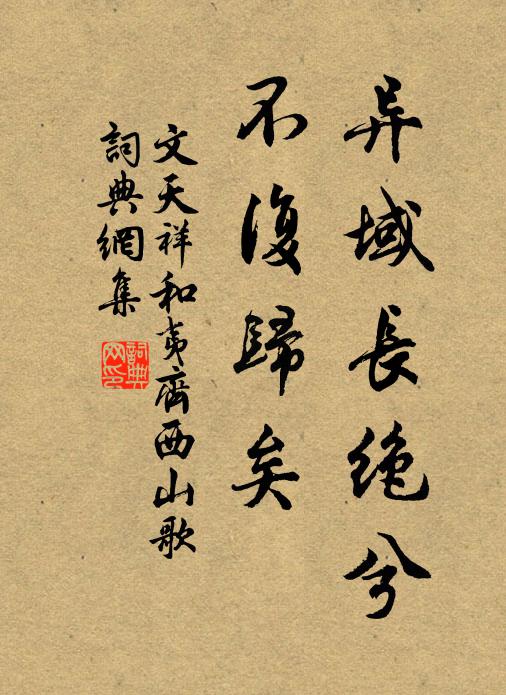 异域長絶兮
不復歸矣
文天祥和夷齊西山歌
詞典網集
詞典
网印